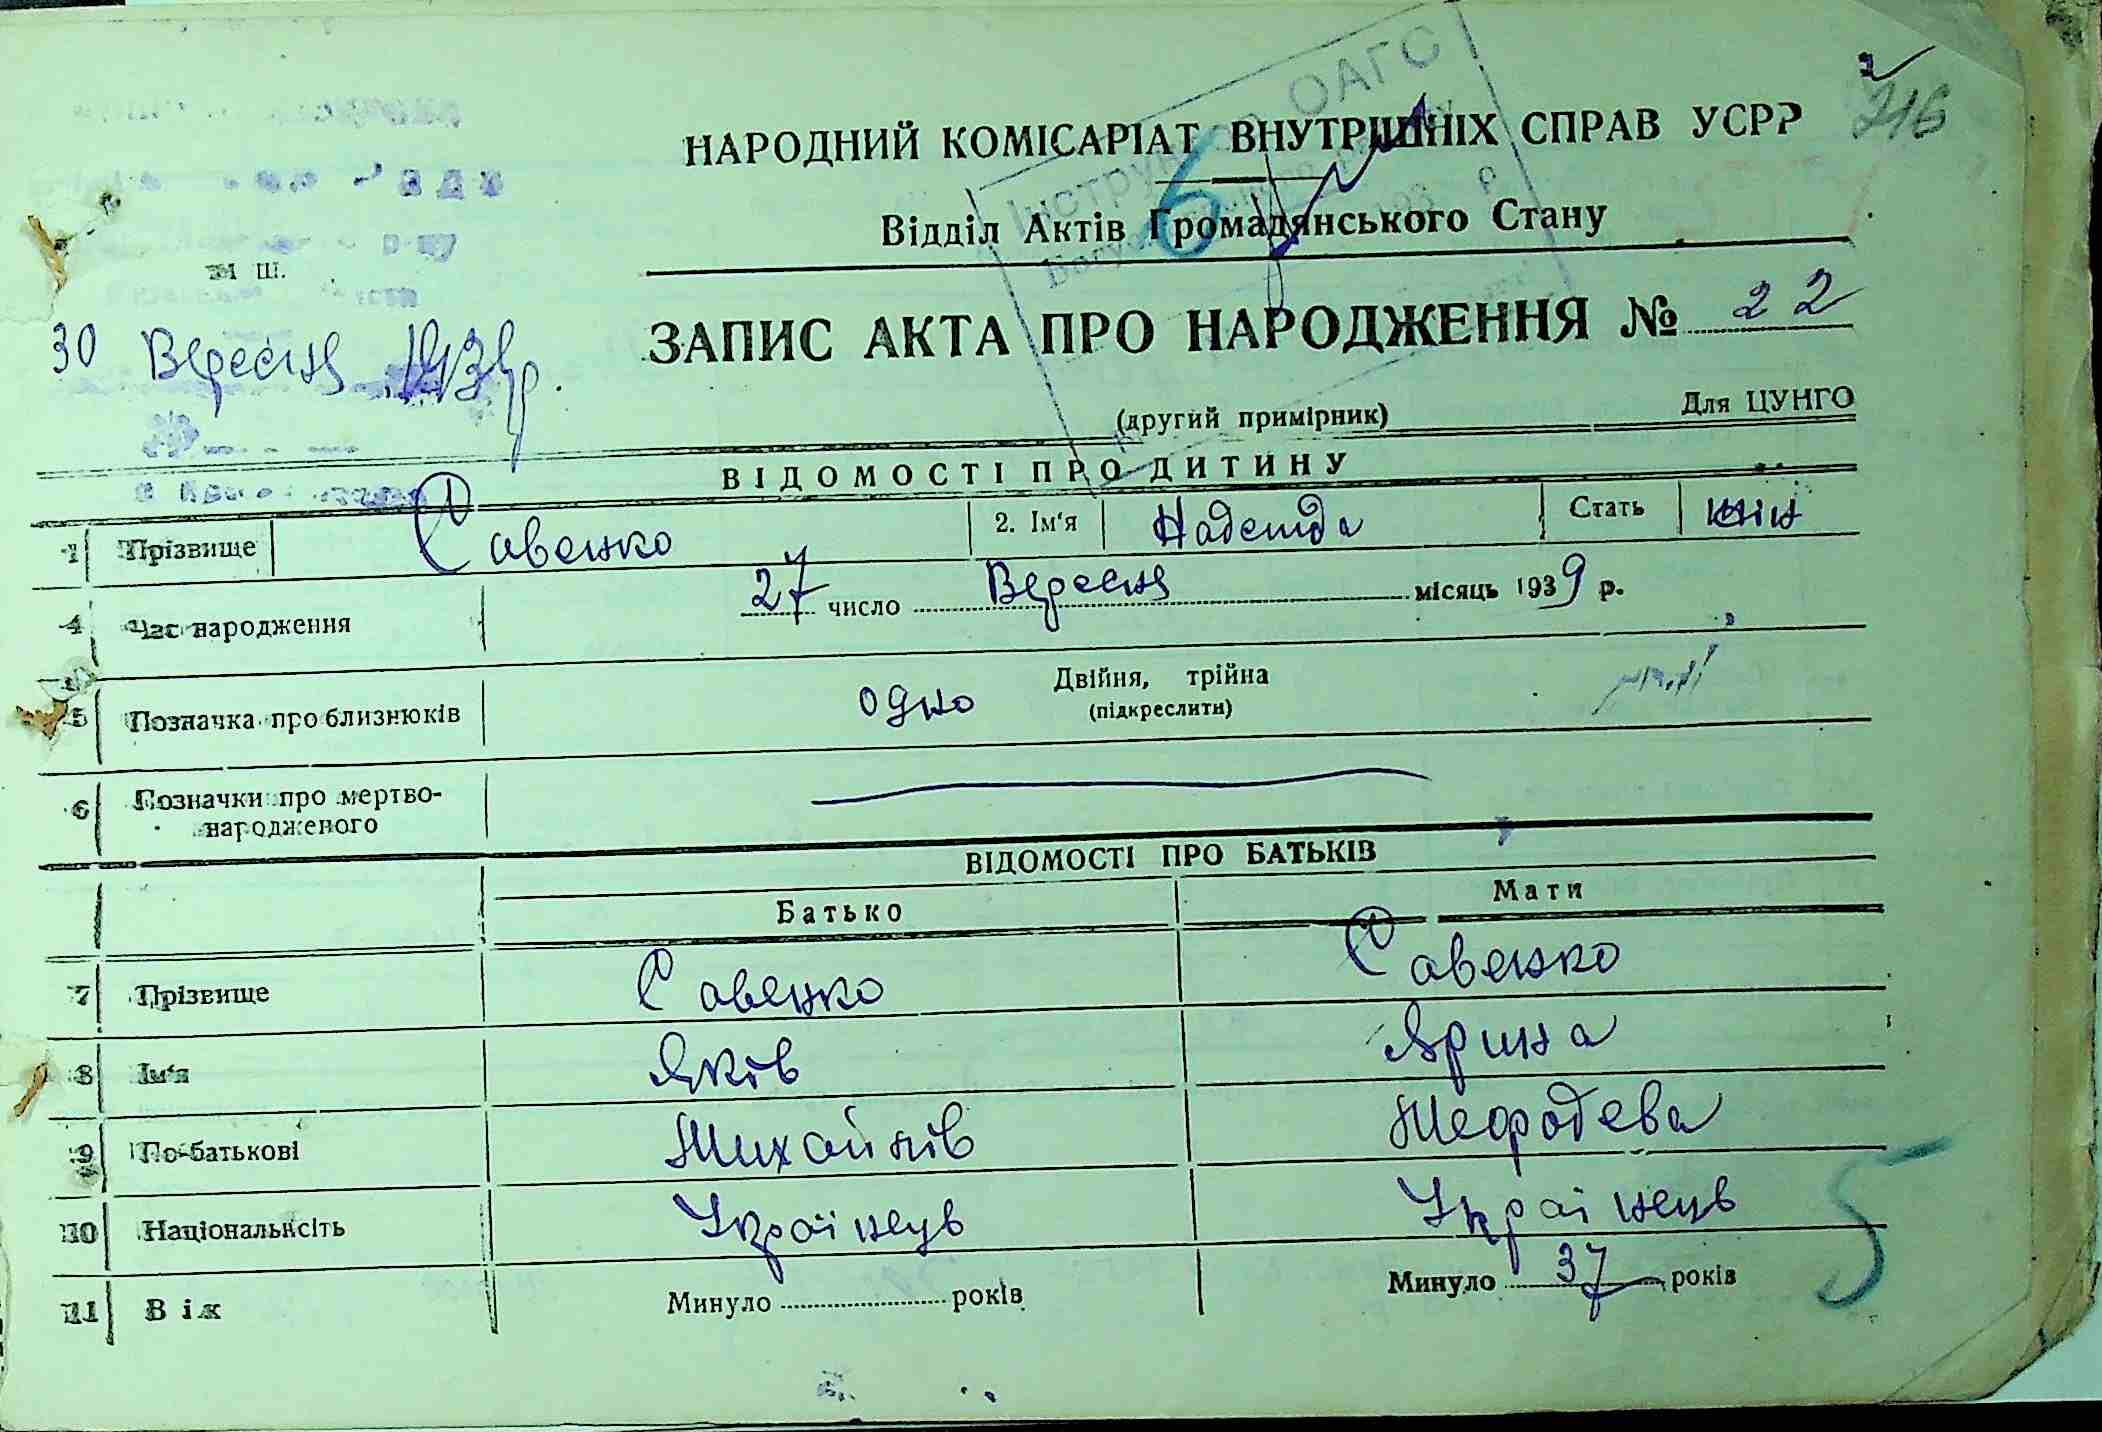 216
НАРОДНИЙ КОМІСАРІАТ ВНУТРІШНІХ СПРАВ УСРР
Відділ Актів Громадянського Стану
6
М Ш.
30 Вересня
ЗАПИС АКТА ПРО НАРОДЖЕННЯ № 22
(другий примірник)
Для ЦУНГО
ВІДОМОСТІ ПРО ДИТИНУ
1 Прізвище Савенко 2. Ім'я Надежда Стать жін
4 Час народження 27 число Вересня місяць 1939 р.
5 Позначка про близнюків одно Двійня, трійна
(підкреслити)
6 Позначки про мертво-
народженого
ВІДОМОСТІ ПРО БАТЬКІВ
Батько Мати
7 Прізвище Савенко Савенко
8 Ім'я Яків Ярина
9 По-батькові Михайлів Мефодева
10 Національність Українець Українець
11 Вік Минуло років Минуло 37 років
5